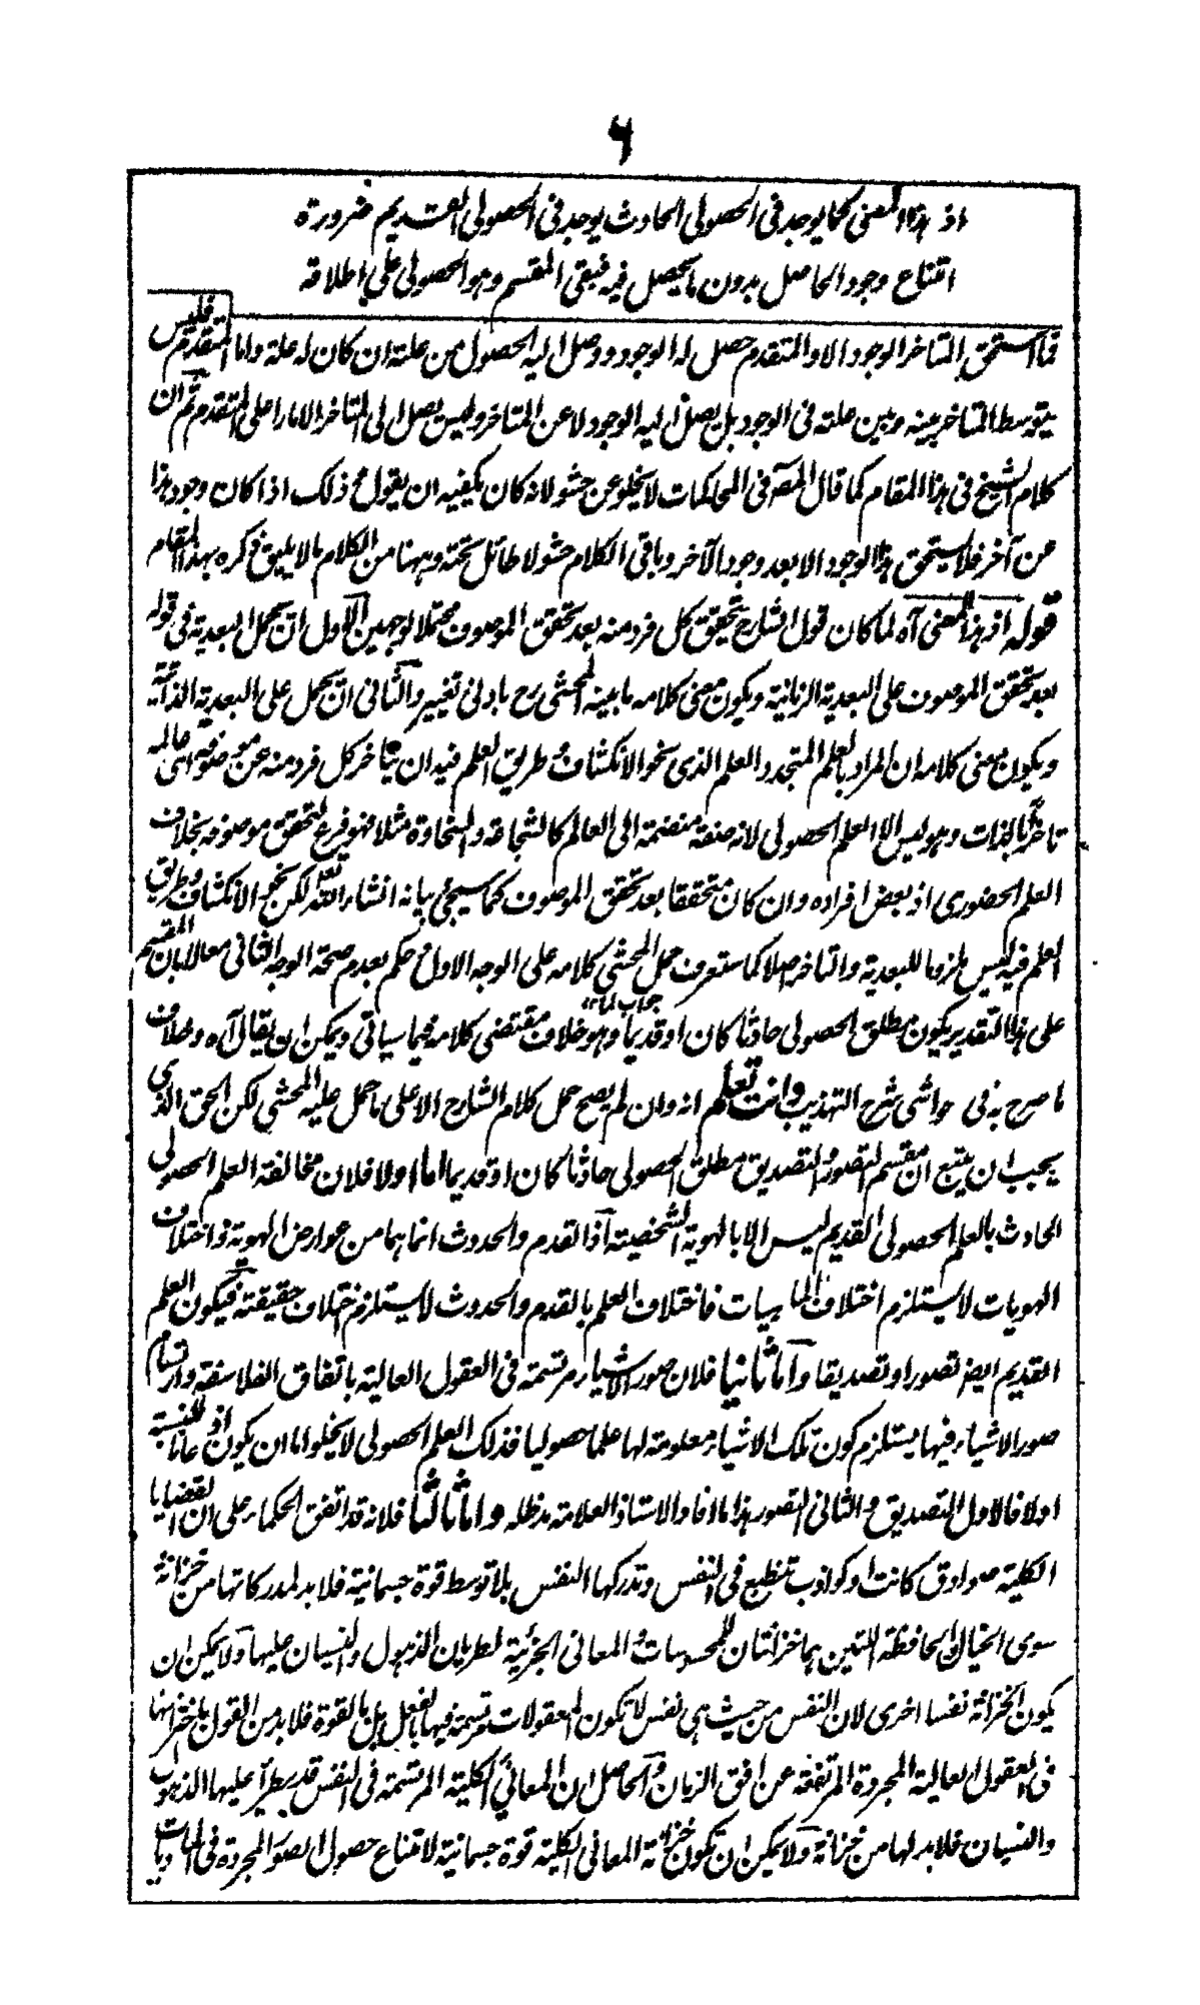 ٦
اذ هذا المعنى كما يوجد في الحصولي الحادث يوجد في الحصولي القديم ضرورة
امتناع وجود الحاصل بدون ما يحصل فيه فبقى المقسم وهو الحصولي على اطلاقه
فما استحق المتاخر الوجود الا والمتقدم حصل له الوجود ووصل اليه الحصول من علته ان كان له علة واما المتقدم فليس
يتوسط المتاخر بينه وبين علته في الوجود بل يصل اليه الوجود لا عن المتاخر وليس يصل الى المتاخر الا مارا على المتقدم ثم ان
كلام الشيخ في هذا المقام كما قال المص في المحاكمات لا يخلو عن حشو لانه كان يكفيه ان يقول ح ذلك اذا كان وجود هذا
عن آخر فلا يستحق هذا الوجود الا بعد وجود الآخر وباقي الكلام حشو لا طائل تحته وههنا من الكلام ما لا يليق ذكره بهذا المقام
قوله اذ هذا المعنى آه لما كان قول الشارح يتحقق كل فرد منه بعد تحقق الموصوف محتملا لوجهين الاول ان يحمل البعدية في قوله
بعد تحقق الموصوف على البعدية الزمانية ويكون معنى كلامه ما بينه المحشي رح بادنى تغيير والثاني ان يحمل على البعدية الذاتية
ويكون معنى كلامه ان المراد بالعلم المتجدد العلم الذي نحو الانكشاف وطريق العلم فيه ان يتاخر كل فرد منه عن موصوفه اى عالمه
تاخرا بالذات وهو ليس الا العلم الحصولي لانه صفة منضمة الى العالم كالشجاعة والسخاوة مثلا فهو فرع لتحقق موصوفه بخلاف
العلم الحضوري اذ بعض افراده وان كان متحققا بعد تحقق الموصوف كما سيجئ بيانه انشاء الله تعالى لكن نحو الانكشاف وطريق
العلم فيه ليس ملزوما للبعدية والتاخر اصلا كما ستعرف حمل المحشي كلامه على الوجه الاول ح حكم بعدم صحة الوجه الثاني معللا بان المقسم
على هذا التقدير يكون مطلق الحصولي حادثا كان او قديما وهو خلاف مقتضى كلامه فيما سياتي ويمكن ان يقال آه وخلاف
جواب لما ١٢
ما صرح به في حواشي شرح التهذيب وانت تعلم انه وان لم يصح حمل كلام الشارح الا على ما حمل عليه المحشي لكن الحق الذي
يجب ان يتبع ان مقسم التصور والتصديق مطلق الحصولي حادثا كان او قديما اما اولا فلان مخالفة العلم الحصولي
الحادث بالعلم الحصولي القديم ليس الا بالهوية الشخصية اذ القدم والحدوث انما هما من عوارض الهوية واختلاف
الهويات لا يستلزم اختلاف الماهيات فاختلاف العلم بالقدم والحدوث لا يستلزم اختلاف حقيقته فيكون العلم
القديم ايضا تصورا وتصديقا واما ثانيا فلان صور الاشياء مرتسمة في العقول العالية باتفاق الفلاسفة وارتسام
صور الاشياء فيها يستلزم كون تلك الاشياء معلومة لها علما حصوليا فذلك العلم الحصولي لا يخلو اما ان يكون اذعانا للنسبة
اولا فالاول التصديق والثاني التصور هذا ما افاد الاستاذ العلامة مدظله واما ثالثا فلانه قد اتفق الحكماء على ان القضايا
الكلية صوادق كانت او كواذب تنطبع في النفس وتدركها النفس بلا توسط قوة جسمانية فلا بد لمدركاتها من خزانة
سوى الخيال والحافظة اللتين هما خزانتان للمحسوسات والمعاني الجزئية لطريان الذهول والنسيان عليها ولا يمكن ان
يكون الخزانة نفسا اخرى لان النفس من حيث هي نفس لا تكون المعقولات مرتسمة فيها بالفعل بل بالقوة فلا بد من القول باختزانها
في العقول العالية المجردة المرتفعة عن افق الزمان والحاصل ان المعاني الكلية المرتسمة في النفس قد يطرأ عليها الذهول
والنسيان فلا بد لها من خزانة ولا يمكن ان تكون خزانة المعاني الكلية قوة جسمانية لامتناع حصول الصور المجردة في الماديات